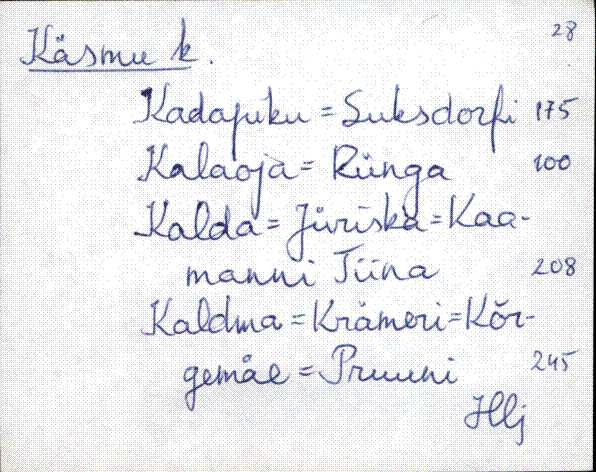 28
Käsmu k.
Kadapiku = Suksdorfi 175
Kalaoja = Rünga 100
Kalda = Jüriska = Kaa-
manni Tiina 208
Kaldma = Krämeri = Kõr-
gemäe = Pruuni 245
Hlj